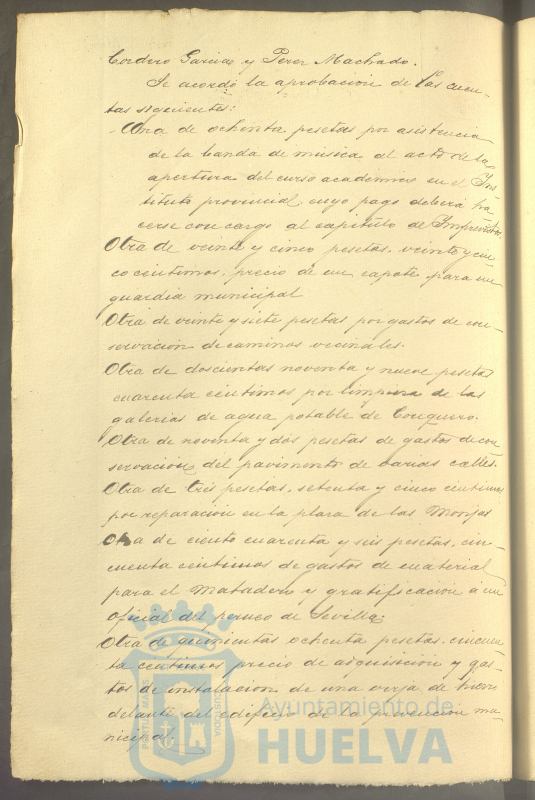 Cordero Garcia y Perez Machado.
Se acordó la aprobacion de las cuen-
tas siguientes:
-Una de ochenta pesetas por asistencia
de la banda de música al acto de la
apertura del curso académico en el Ins-
tituto provincial cuyo pago deberá ha-
cerse con cargo al capítulo de Imprevistos.
Otra de veinte y cinco pesetas, veinte y cin-
co centimos, precio de un capote para un
guardia municipal
Otra de veinte y siete pesetas por gastos de con-
servacion de caminos vecinales.
Otra de doscientas noventa y nueve pesetas
cuarenta céntimos por limpieza de las
galerias de agua potable de Conquero.
Otra de noventa y dos pesetas de gastos de con-
servacion del pavimento de varias calles.
Otra de tres pesetas, setenta y cinco centimos
por reparacion en la plaza de las Monjas
Otra de ciento cuarenta y seis pesetas, cin-
cuenta céntimos de gastos de material
para el Matadero y gratificacion a un
oficial del de Sevilla;
Otra de quinientas ochenta pesetas, cincuen-
ta centimos precio de adquisicion y gas-
tos de instalacion de una verja de hierro
delante del edificio de la prevencion mu-
nicipal.
Ayuntamiento de
HUELVA
PORTUS MARIS
ET TERRAE CUSTODIA